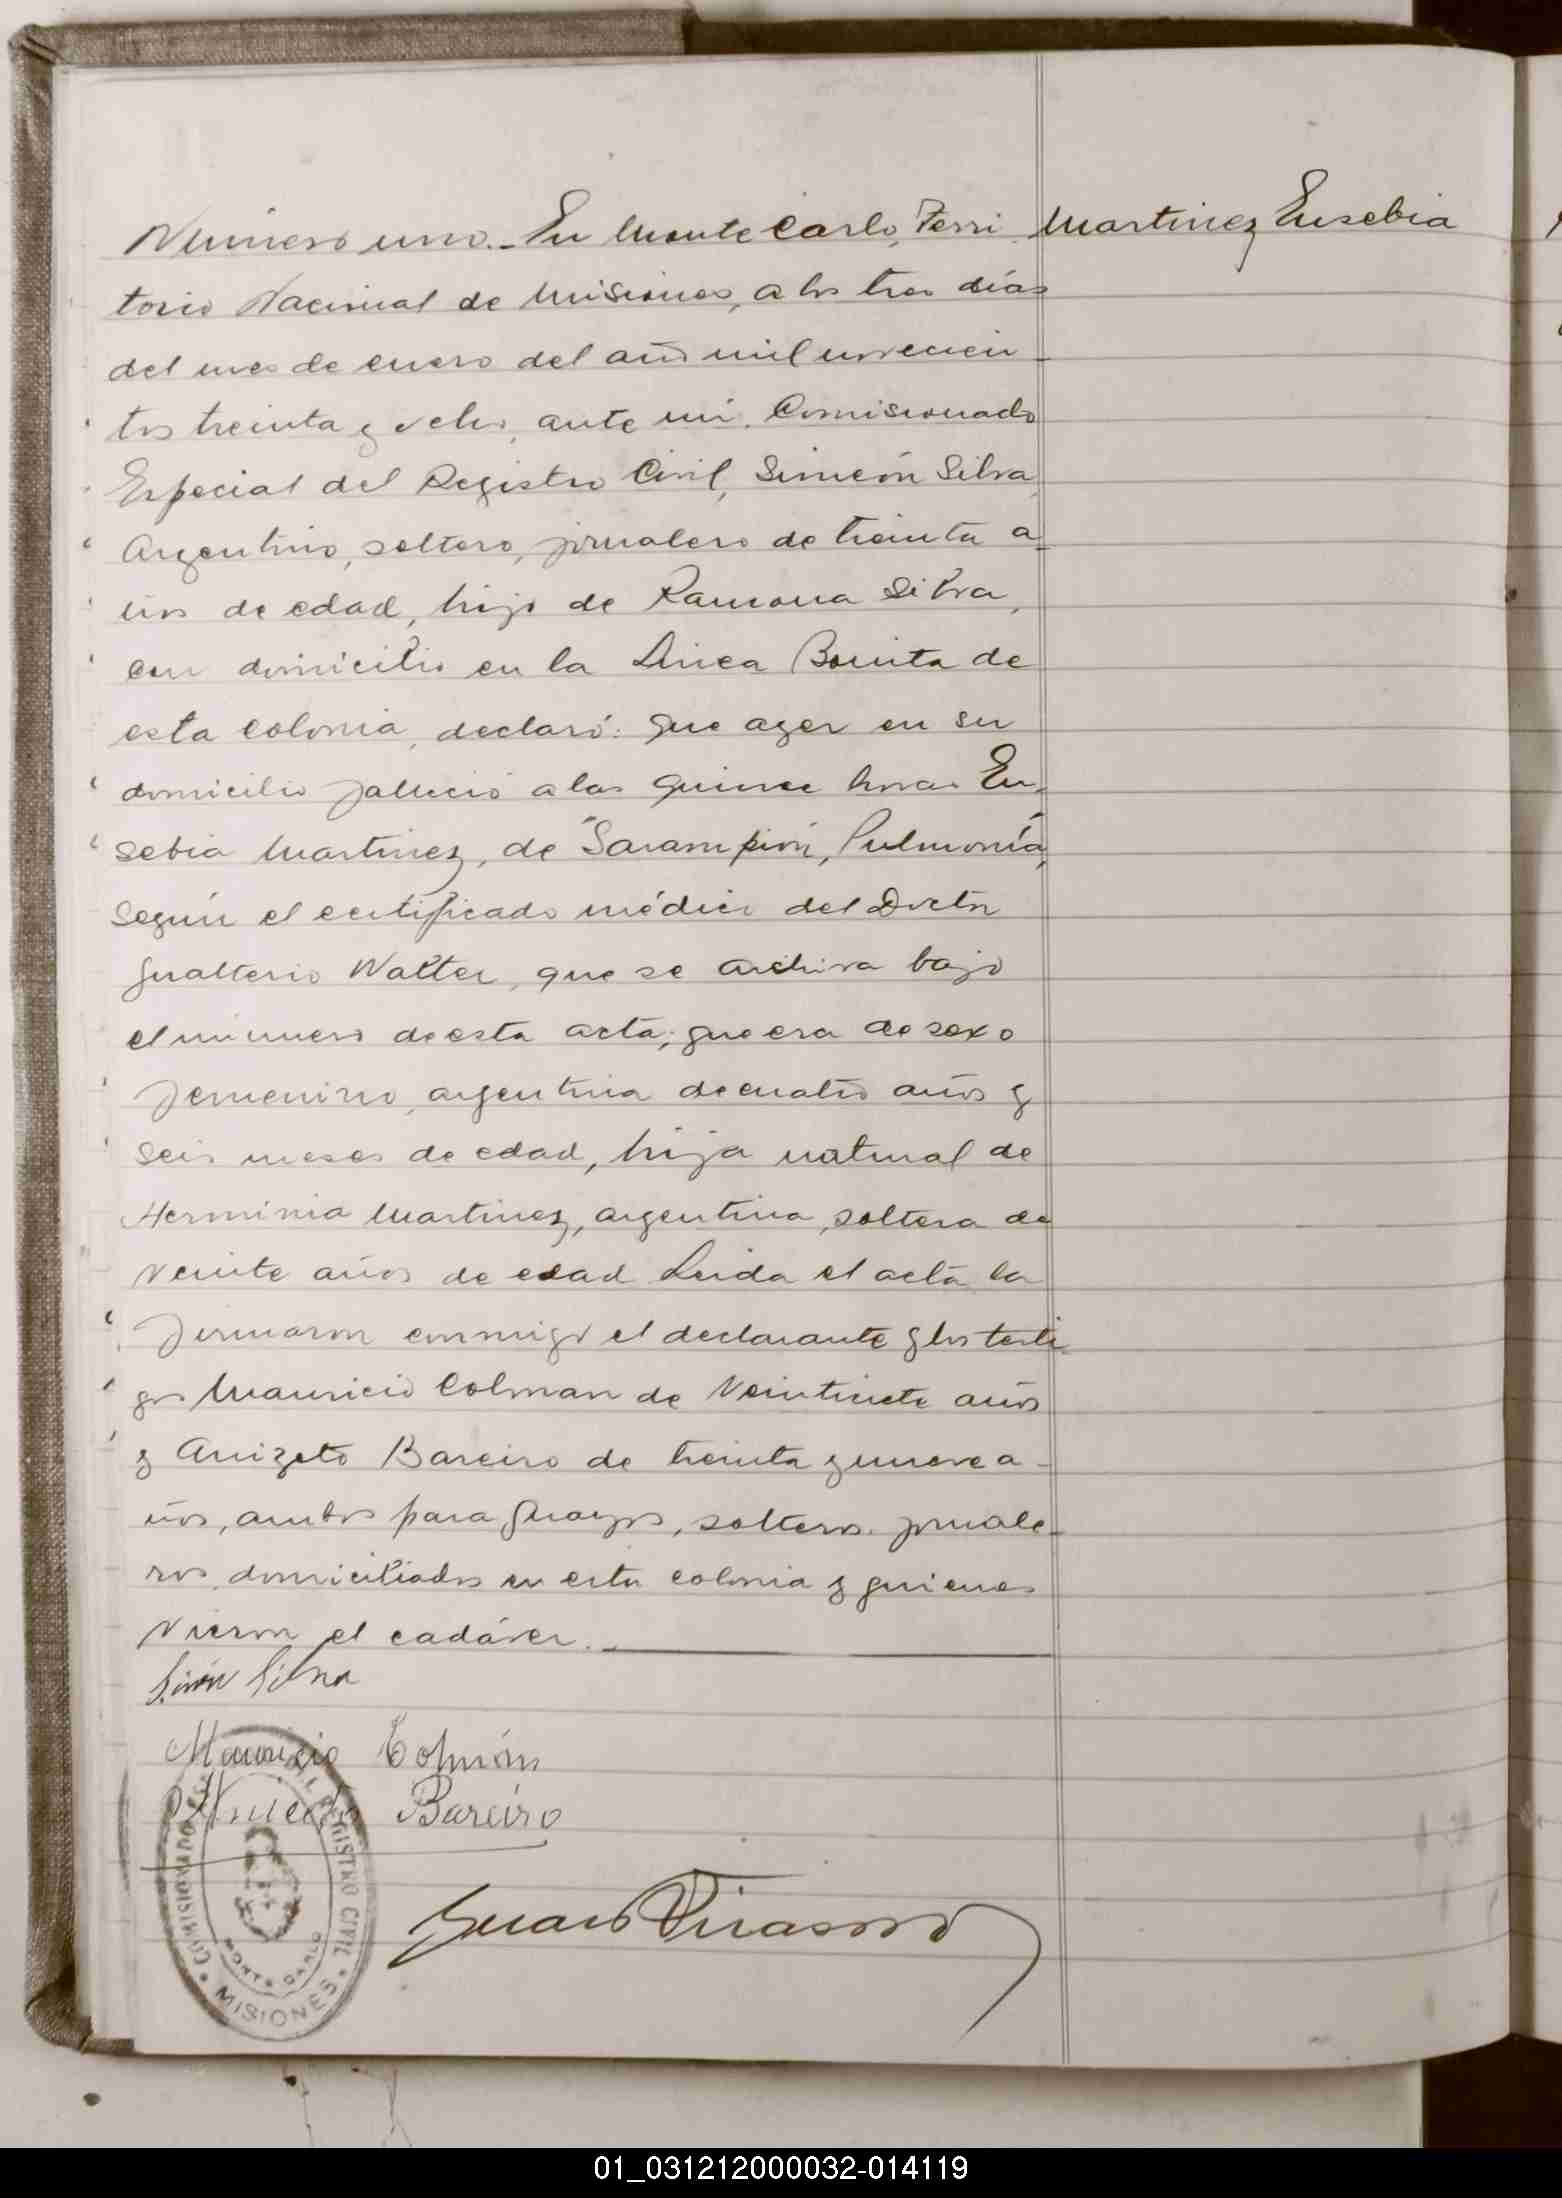 Número uno.- En Monte Carlo, Terri Martinez Eusebia
torio Nacional de Misiones, a los tres días
del mes de enero del año mil novecien-
tos treinta y ocho, ante mí, Comisionado
Especial del Registro Civil, Simeón Silva,
Argentino, soltero, jornalero de treinta a-
ños de edad, hijo de Ramona Silva,
con domicilio en la Linea Bonita de
esta colonia, declaró: que ayer en su
domicilio falleció a las quince horas Eu-
sebia Martinez, de "Sarampión, Pulmonía,
según el certificado médico del Doctor
Gualterio Walter, que se archiva bajo
el número de esta acta; que era de sexo
femenino, argentina de cuatro años y
seis meses de edad, hija natural de
Herminia Martinez, argentina, soltera de
veinte años de edad Leida el acta la
firmaron conmigo el declarante y los testi-
gos Mauricio Colman de veintisiete años
y Anizeto Bareiro de treinta y nueve a-
ños, ambos paraguayos, solteros. jornale-
ros, domiciliados en esta colonia y quienes
vieron el cadáver.
Silva
Mauricio Colmán
Aniceto Bareiro
COMISIONADO REGISTRO CIVIL
MONTE CARLO
MISIONES
01_031212000032-014119